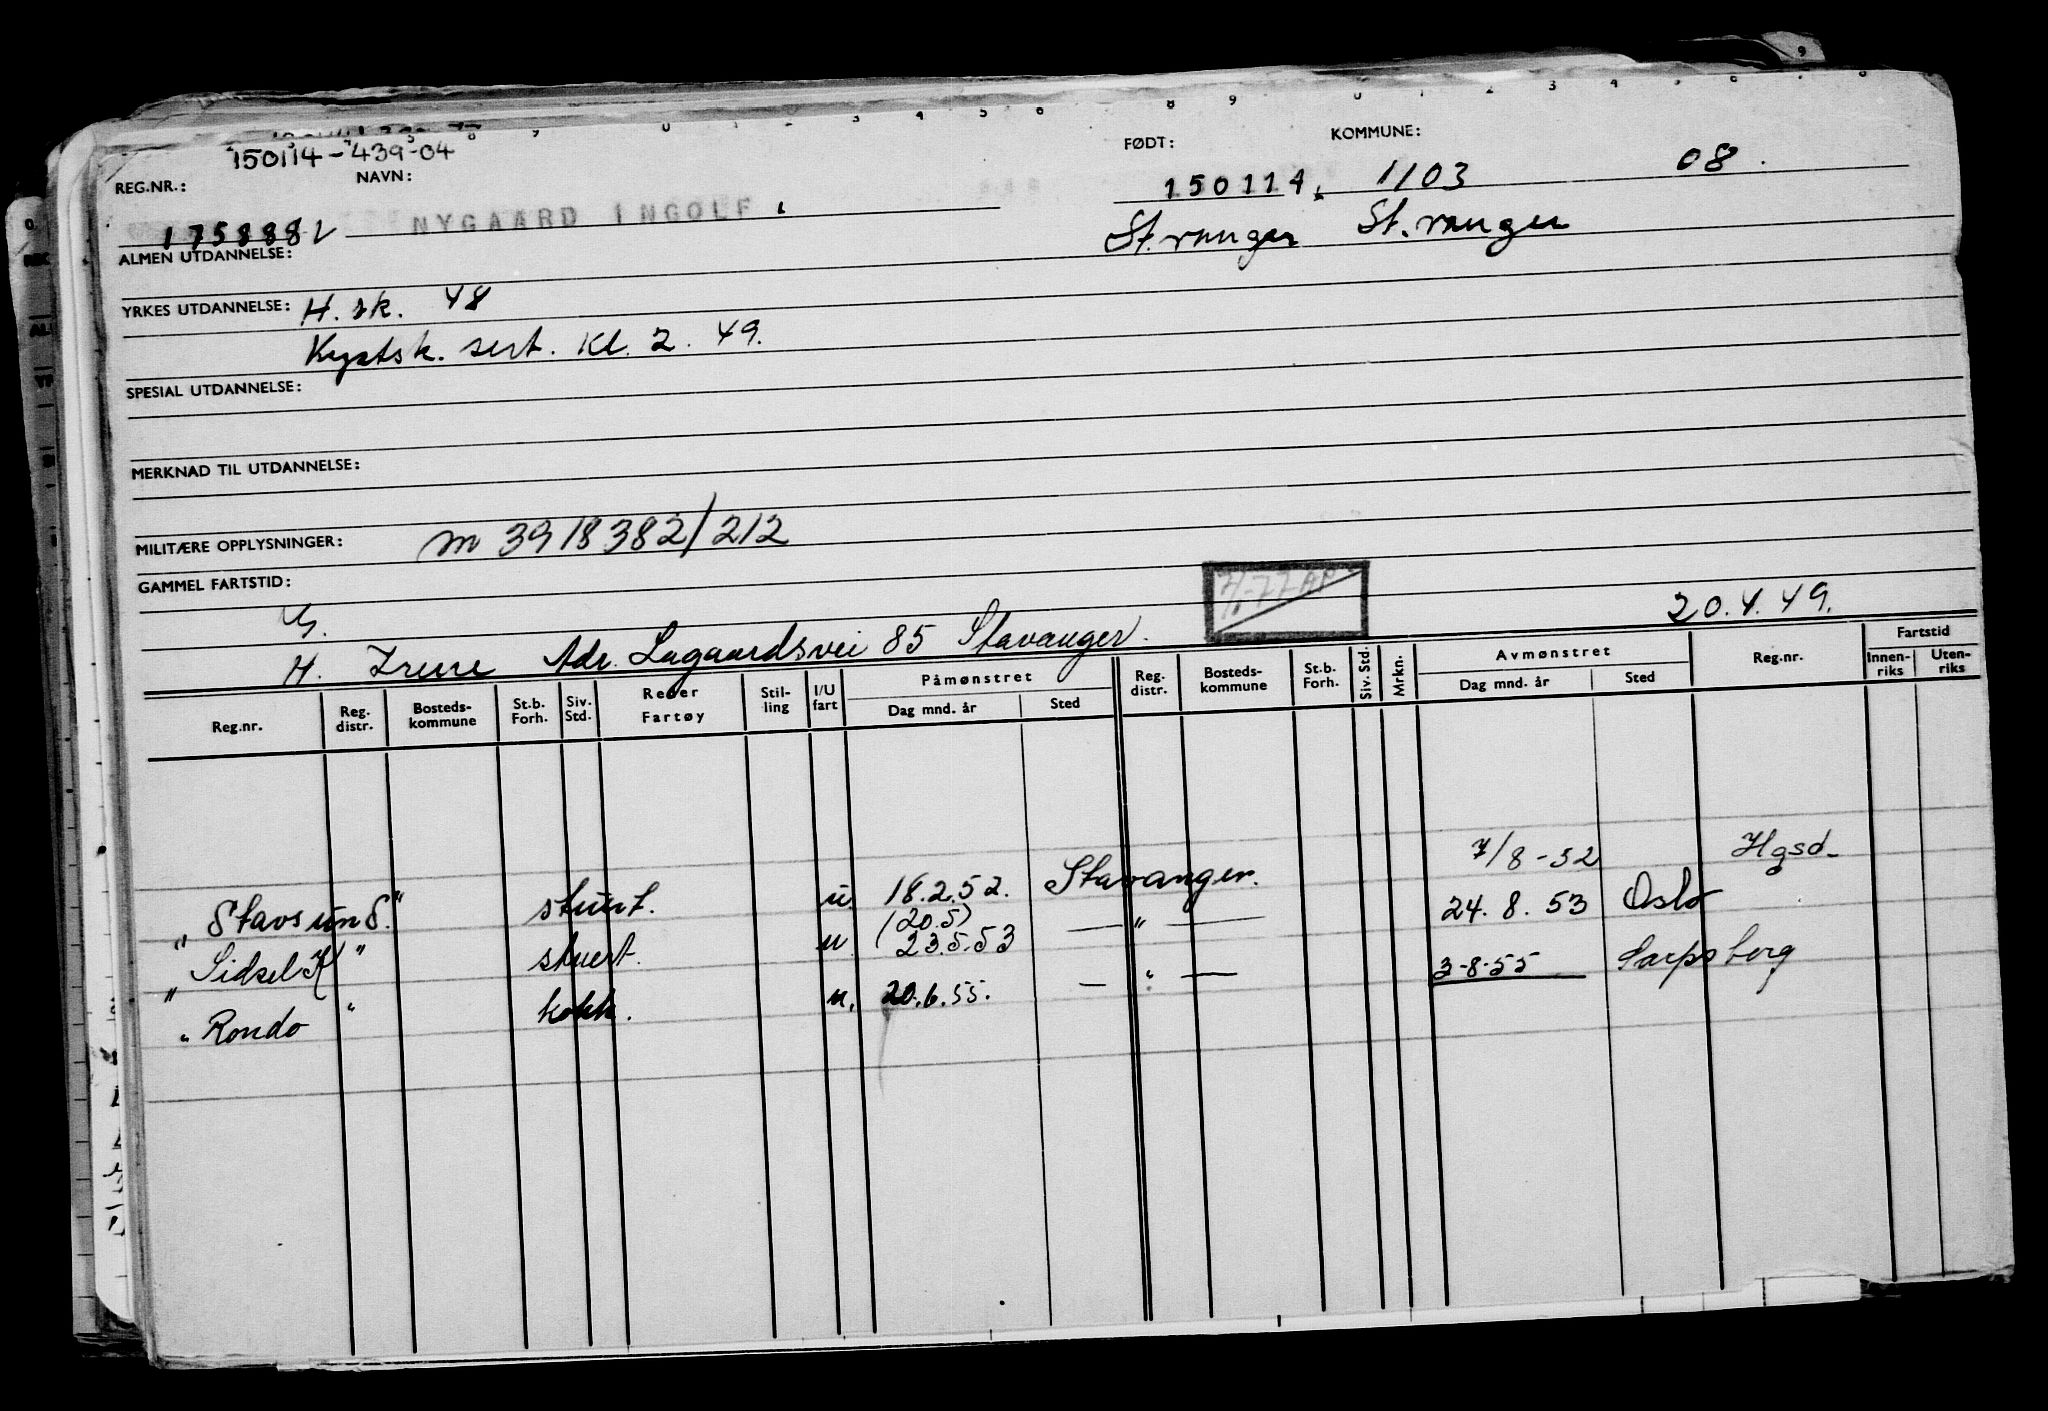 150114-439-04
REG.NR.: NAVN: FØDT: KOMMUNE:
1758882 NYGAARD INGOLF, 150114. 1103 08.
St.vanger St.vanger
ALMEN UTDANNELSE:
YRKES UTDANNELSE: H. sk. 48
Kystsk. sert. Kl. 2. 49.
SPESIAL UTDANNELSE:
MERKNAD TIL UTDANNELSE:
MILITÆRE OPPLYSNINGER: m 3918382/212
GAMMEL FARTSTID:
G. 20.4.49.
H. Irene Adr. Lagaardsvei 85 Stavanger.
Reg.nr. Reg. distr. Bosteds- kommune St.b. Forh. Siv. Std. Reder Fartøy Stil- ling I/U fart Påmønstret Dag mnd. år Sted Reg. distr. Bosteds- kommune St.b. Forh. Siv. Std. Mrkn. Avmønstret Dag mnd. år Sted Reg.nr. Fartstid Innen- riks Uten- riks
"Stavsund." stuert. u. 18.2.52. Stavanger. 7/8-52 Hgsd.
(20.5)
"Sidsel K" stuert. u. 23.5.53 — " — 24. 8. 53 Oslo
"Rondo" kokk. u. 20.6.55. — " — 3-8-55 Sarpsborg